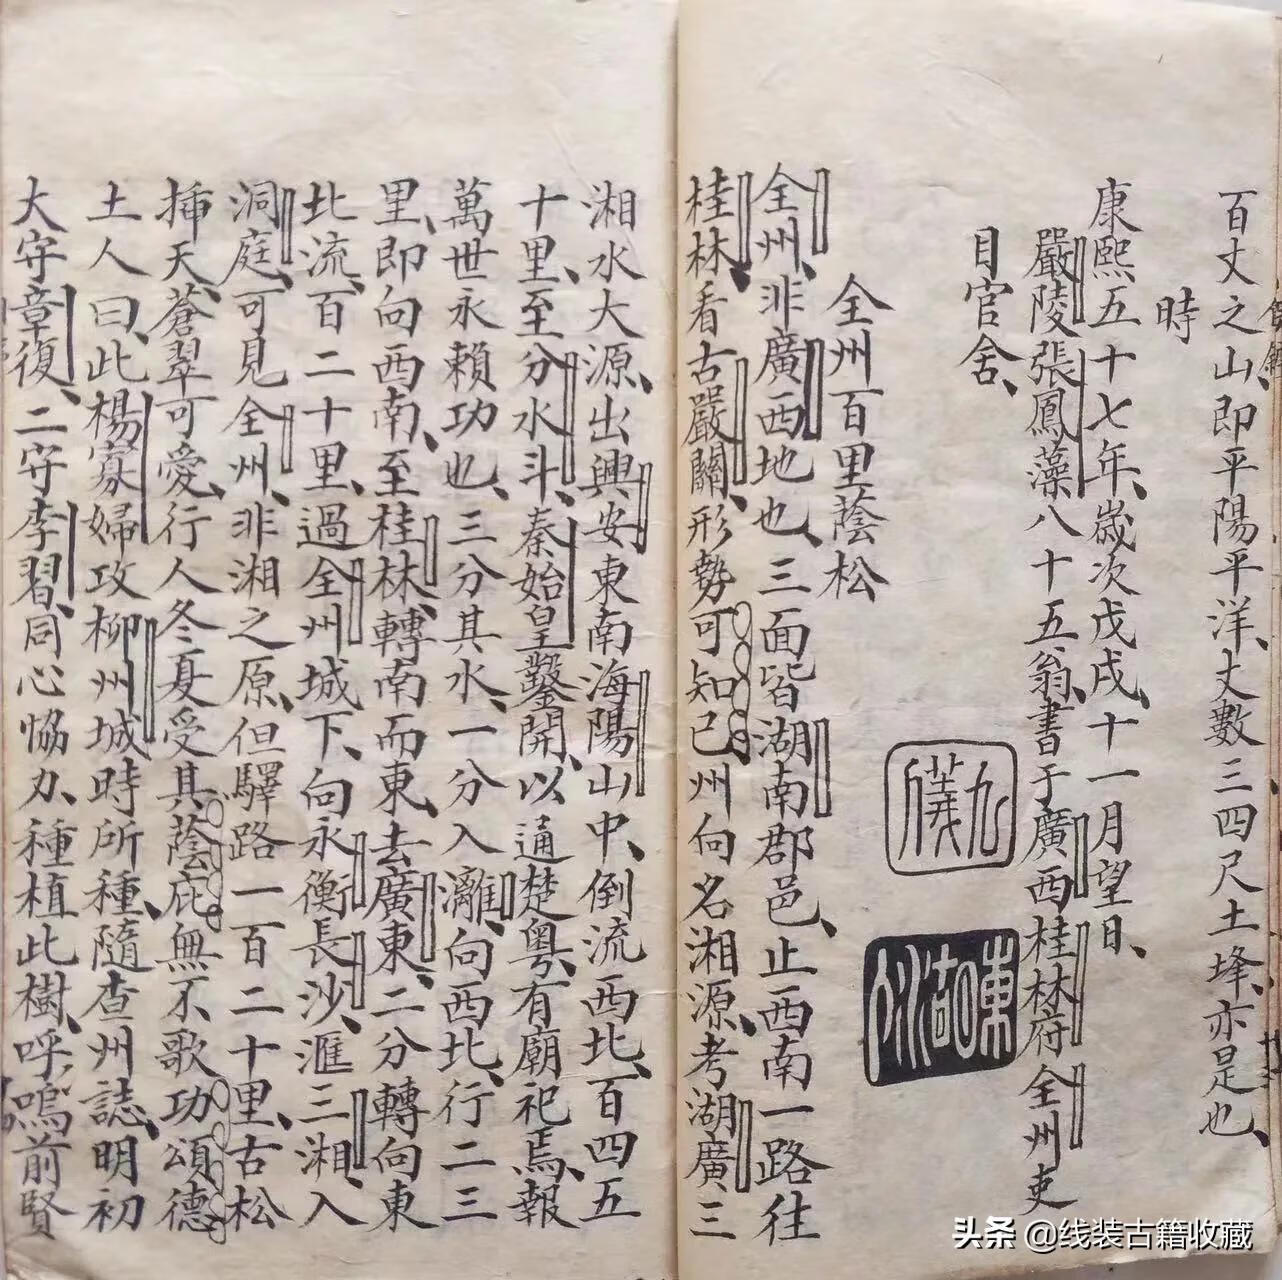 百丈之山、即平陽平洋、丈數三四尺土埄、亦是也、
時
康熙五十七年、歲次戊戌、十一月望日、
嚴陵張鳳藻八十五翁、書于廣西桂林府全州吏
目官舍、
九儀
東湖
全州百里蔭松
全州、非廣西地也、三面皆湖南郡邑、止西南一路往
桂林、看古嚴關、形勢可知已州向名湘源、考湖廣、三
湘水大源、出興安東南海陽山中、倒流西北、百四五
十里、至分水斗、秦始皇鑿開、以通楚粵、有廟祀焉、報
萬世永賴功也、三分其水、一分入灕、向西北、行二三
里、即向西南、至桂林、轉南而東、去廣東、二分轉向東
北流、百二十里、過全州城下、向永衡長沙、滙三湘、入
洞庭、可見全州、非湘之原、但驛路一百二十里、古松
揷天、蒼翠可愛、行人冬夏受其蔭庇、無不歌功頌德
土人曰、此楊寡婦攻柳州城時所種、隨查州誌、明初
大守章復、二守李習、同心恊力、種植此樹、呼、嗚前賢
头条 @线装古籍收藏